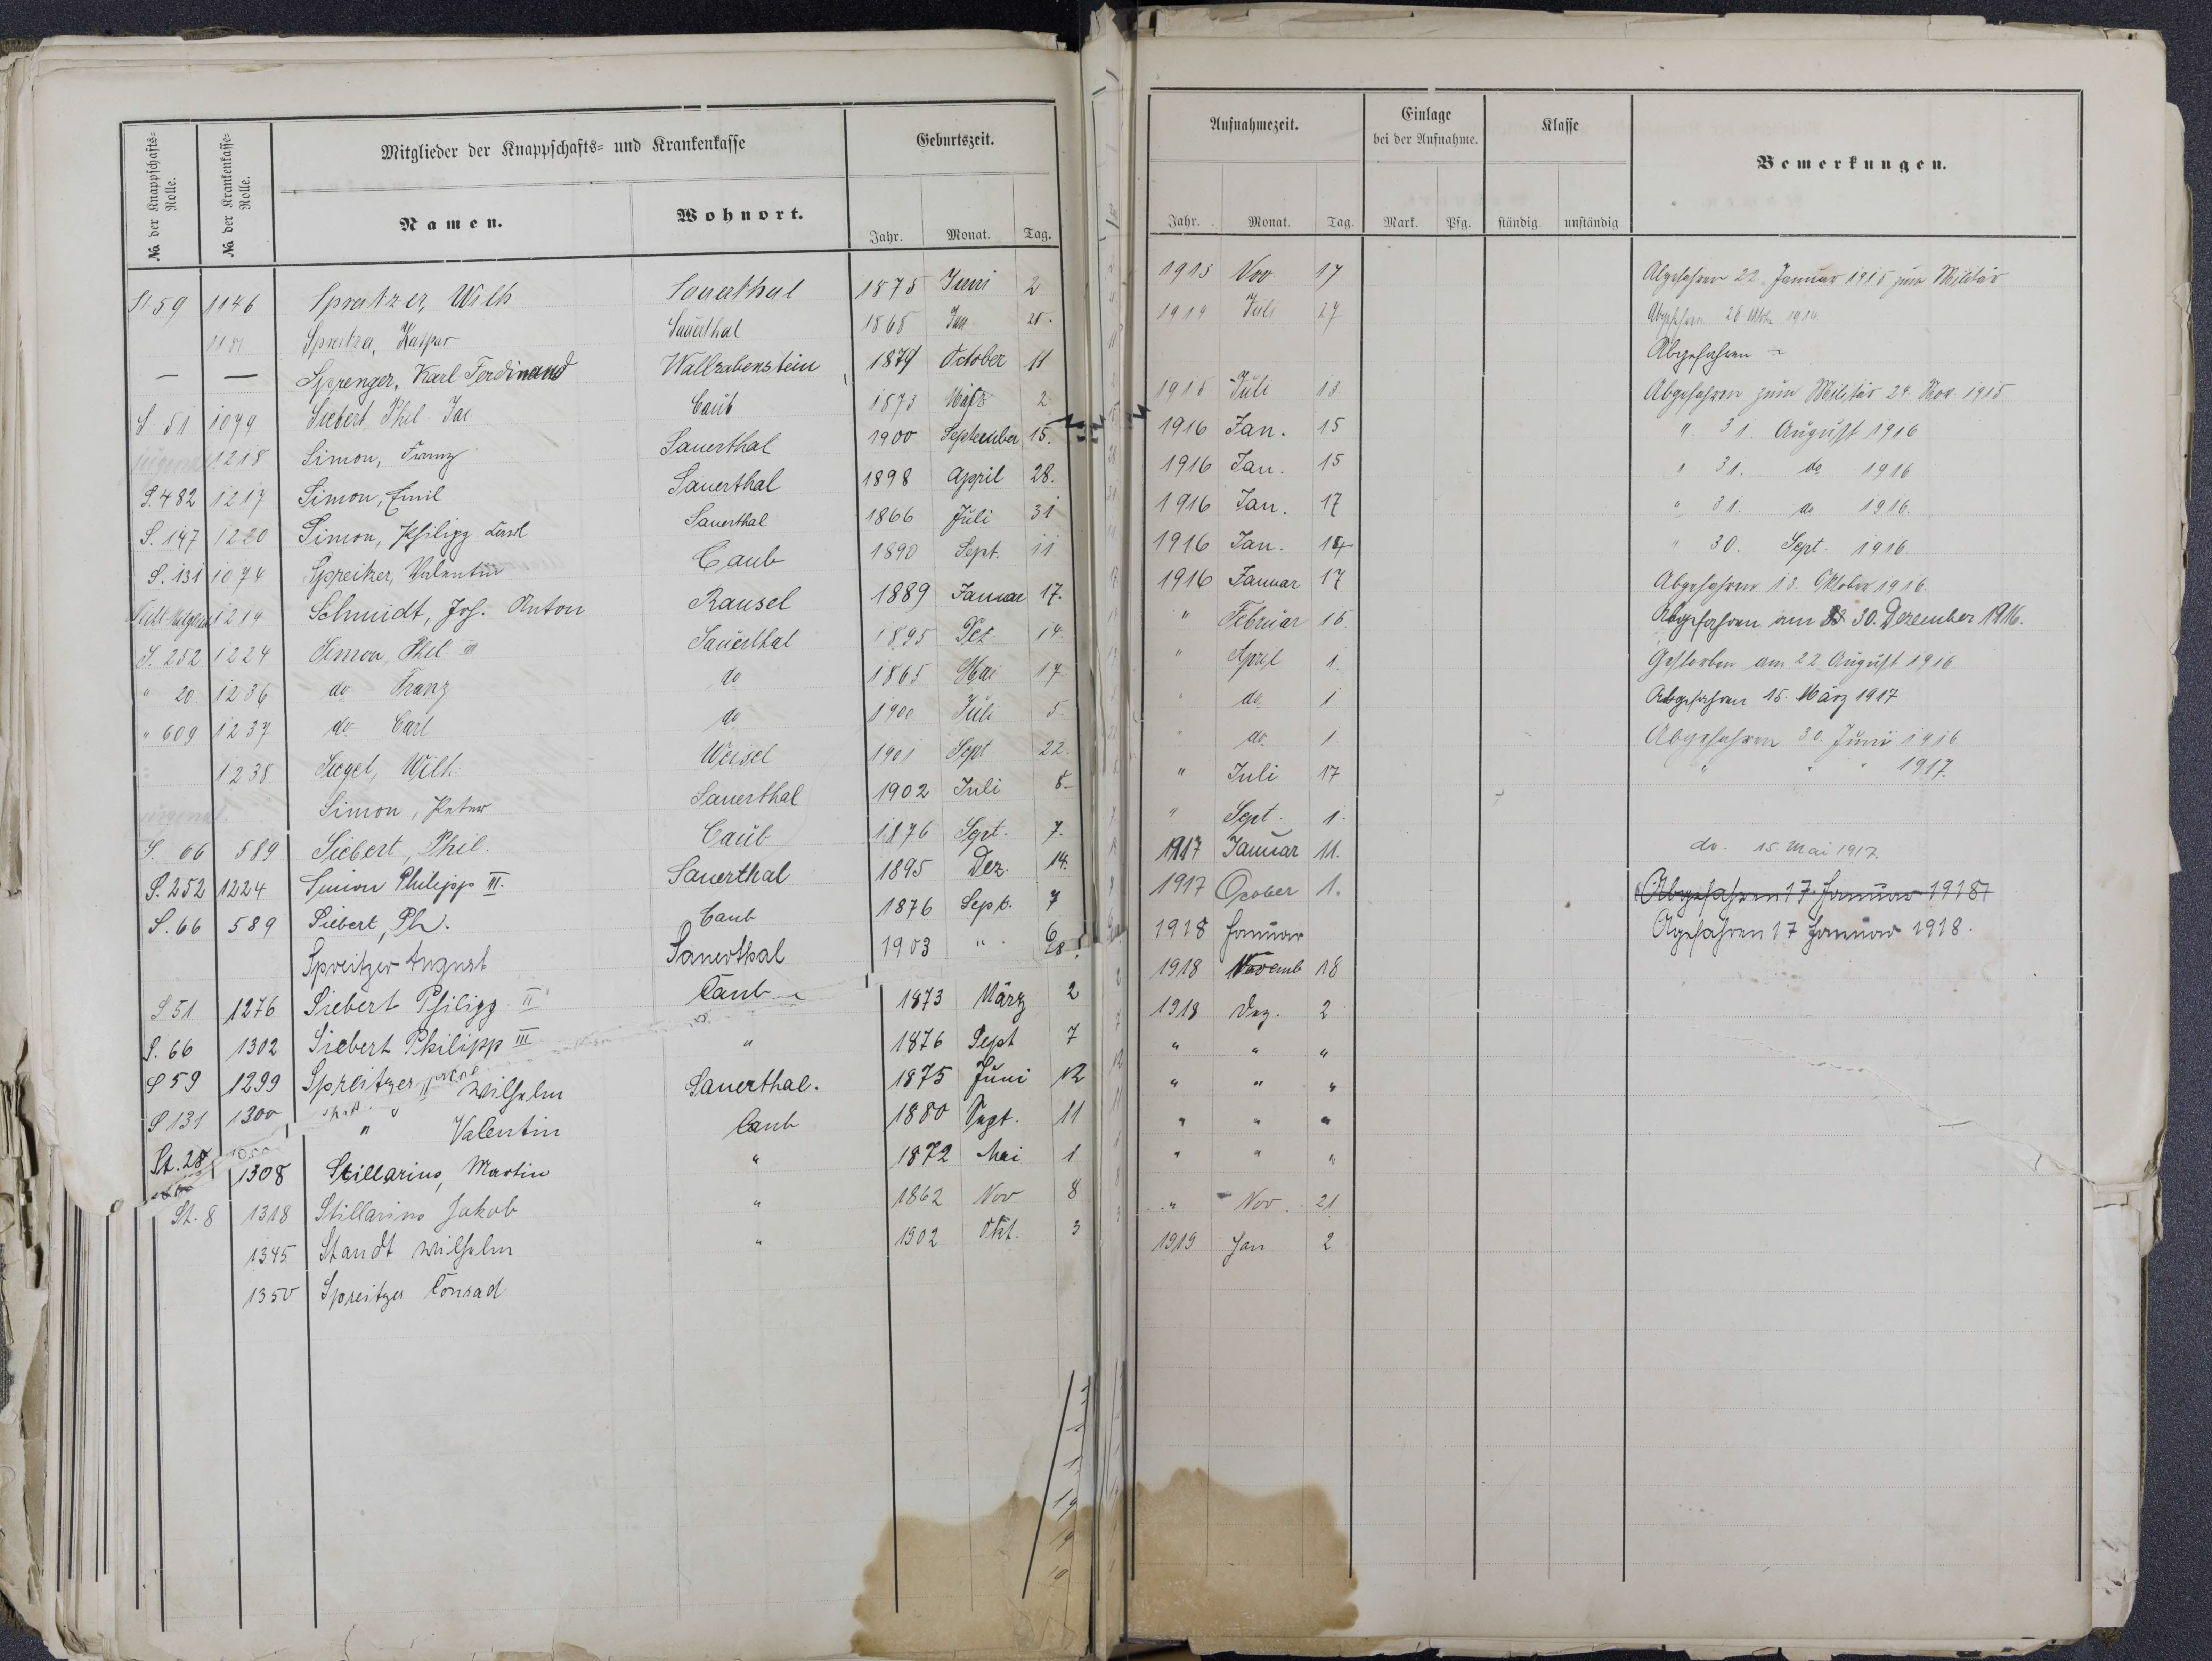 № der Knappschafts-Rolle.
№ der Krankenkasse-Rolle.
Mitglieder der Knappschafts- und Krankenkasse
Namen.
Wohnort.
Geburtszeit.
Jahr. Monat. Tag.
Aufnahmezeit.
Jahr. Monat. Tag.
Einlage
bei der Aufnahme.
Mark. Pfg.
Klasse
ständig unständig
Bemerkungen.
St. 59 1146 Spreitzer, Wilh Sauerthal 1875 Juni 2
Kaspar Sauerthal 1868 Jan
— — Sprenger, Karl Ferdinand Wallrabenstein 1879 October 11
S. 51 1079 Siebert, Phil. Jac. Caub 1873 März 2
1218 Simon, Franz Sauerthal 1900 September 15.
S. 482 1217 Simon, Emil Sauerthal 1898 April 28.
S. 147 1220 Simon, Philipp Sauerthal 1866 Juli 31
S. 131 1074 Spreitzer, Valentin Caub 1890 Sept. 11
1219 Schmidt, Jos. Anton Ransel 1889 Januar 17.
S. 252 1224 Simon, Phil III Sauerthal 1895 Dez. 14.
" 20. 1236 do Franz do 1865 Mai 17
" 609 1237 do Carl do 1900 Juli 5
1238 Siegel, Wilh. Weisel 1901 Sept 22.
jugendl. Simon, Peter Sauerthal 1902 Juli 8.
S. 66 589 Siebert, Phil. Caub 1876 Sept. 7.
S. 252 1224 Simon Philipp III. Sauerthal 1895 Dez. 14.
S. 66 589 Siebert, Ph. Caub 1876 Sept. 7
Spreitzer August Sauerthal 1903 "
S 51 1276 Siebert Philipp II Caub 1873 März 2
S. 66 1302 Siebert Philipp III " 1876 Sept 7
S 59 1299 Spreitzer II Wilhelm Sauerthal. 1875 Juni 12
S 131 1300 " Valentin Caub 1880 Sept. 11
St. 28 1308 Stillarius, Martin " 1872 Mai 1
St. 8 1318 Stillarius Jakob " 1862 Nov 8
1345 Standt Wilhelm " 1902 Okt. 3
1350 Spreitzer Conrad
1913 Nov. 17 Abgefahren 22. Januar 1915 zum Militär
1914 Juli 27 Abgefahren 1914
Abgefahren
1915 Juli 13 Abgefahren zum Militär 24. Nov. 1915
1916 Jan. 15 " 31. August 1916
1916 Jan. 15 " 31. do 1916
1916 Jan. 17 " 31. do 1916.
1916 Jan. " 30. Sept. 1916.
1916 Januar 17 Abgefahren 13. Oktober 1916.
" Februar 15 Abgefahren am 30. Dezember 1916.
" April 1. Gestorben am 22. August 1916
" do. 1 Abgefahren 15. März 1917
" do. 1. Abgefahren 30. Juni 1916.
" Juli 17 " " " 1917.
" Sept. 1.
1917 Januar 11. do. 15. Mai 1917.
1917 1. Abgefahren 17. Januar 1918
1918 Januar Agefahren 17 Januar 1918.
1918 Novemb 18
1918 Dez. 2
" " "
" " "
" " "
" " "
" Nov. 21
1919 Jan 2